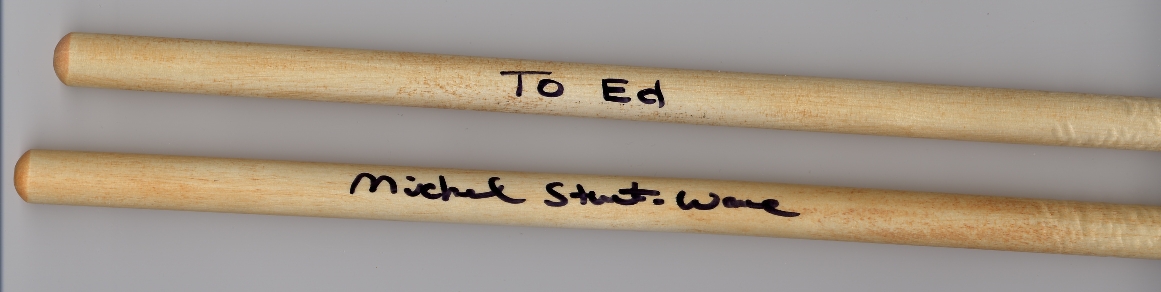 To Ed
Michael Stuart-Ware